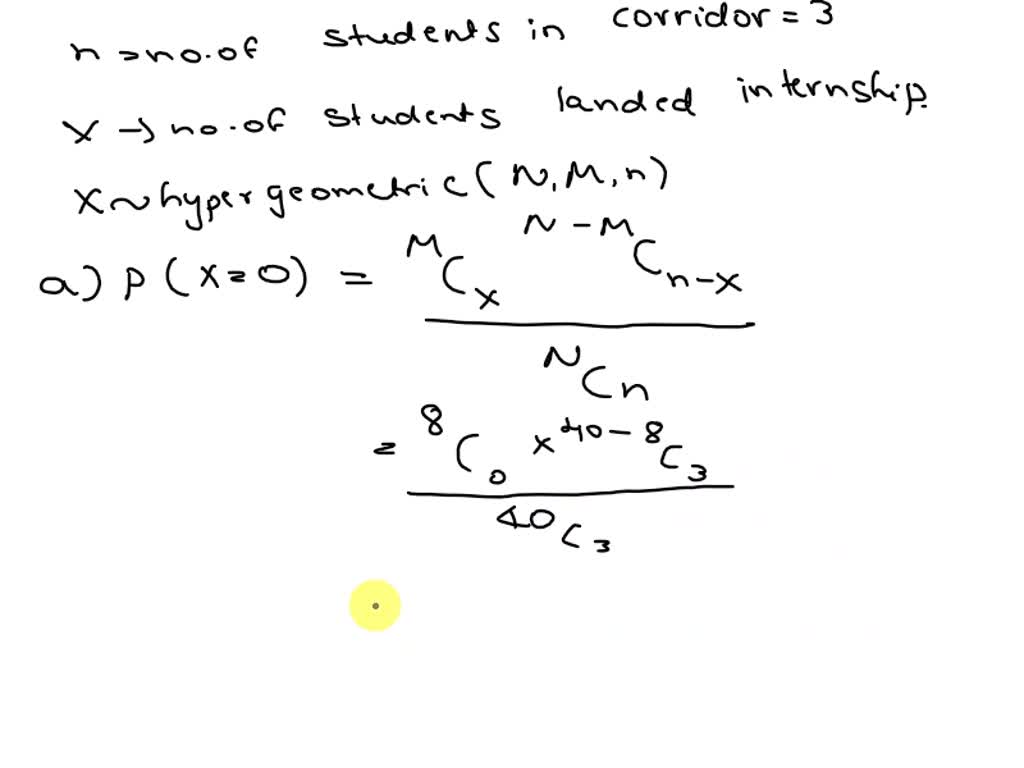 n → no. of students in corridor = 3
X → no. of students landed internship
X ~ hypergeometric (N, M, n)
a) P (X = 0) = ᴹCₓ ᴺ⁻ᴹCₙ₋ₓ
ᴺCₙ
= ⁸C₀ × ⁴⁰⁻⁸C₃
⁴⁰C₃